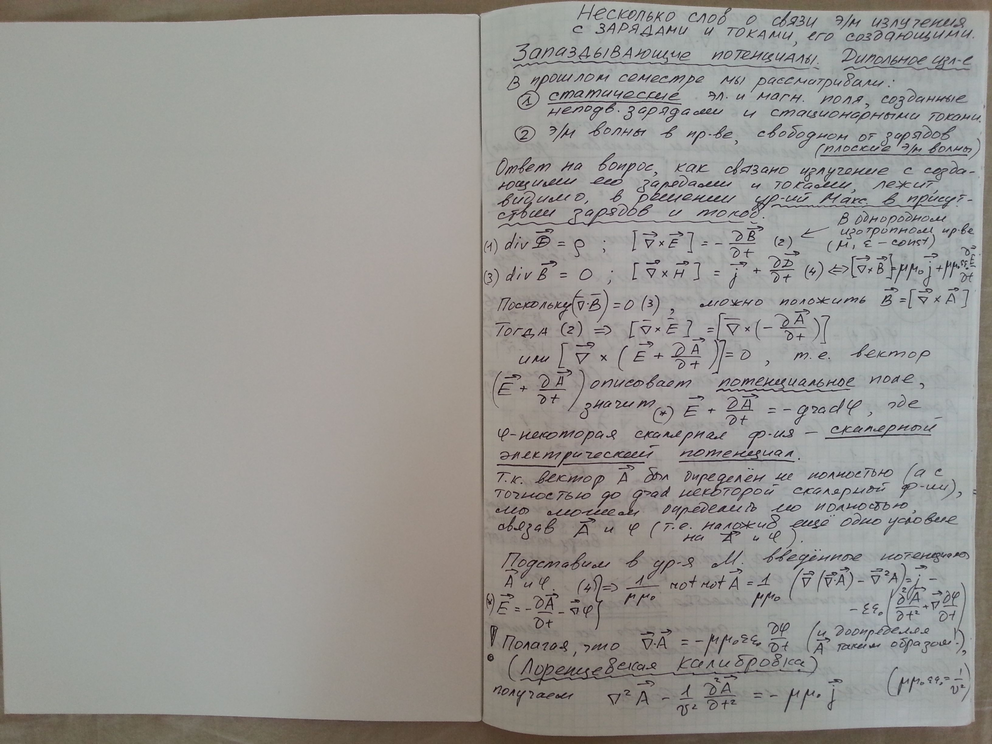 Несколько слов о связи э/м излучения
с зарядами и токами, его создающими.
Запаздывающие потенциалы. Дипольное изл-е
В прошлом семестре мы рассматривали:
① статические эл. и магн. поля, созданные
неподв. зарядами и стационарными токами
② э/м волны в пр-ве, свободном от зарядов
(плоские э/м волны)
Ответ на вопрос, как связано излучение с созда-
ющими его зарядами и токами, лежит,
видимо, в решении ур-ий Макс. в присут-
ствии зарядов и токов.
В однородном
изотропном пр-ве
(μ, ε - const)
(1) div D⃗ = ρ ; [∇⃗×E⃗] = -∂B⃗/∂t (2)
(3) div B⃗ = 0 ; [∇⃗×H⃗] = j⃗ + ∂D⃗/∂t (4) ⇔ [∇⃗×B⃗] = μμ₀j⃗ + μμ₀εε₀ ∂E⃗/∂t
Поскольку (∇⃗·B⃗) = 0 (3), можно положить B⃗ = [∇⃗×A⃗]
Тогда (2) ⇒ [∇⃗×E⃗] = [∇⃗×(-∂A⃗/∂t)]
или [∇⃗×(E⃗ + ∂A⃗/∂t)] = 0, т.е. вектор
(E⃗ + ∂A⃗/∂t) описовает потенциальное поле,
значит (*) E⃗ + ∂A⃗/∂t = -grad φ, где
φ-некоторая скалярная ф-ия - скалярный
электрический потенциал.
Т.к. вектор A⃗ был определён не полностью (а с
точностью до grad некоторой скалярной ф-ии),
мы можем определить его полностью,
связав A⃗ и φ (т.е. наложив ещё одно условие
на A⃗ и φ).
Подставим в ур-я М. введённые потенциалы
A⃗ и φ. (4) ⇒ 1/μμ₀ rot rot A⃗ = 1/μμ₀ (∇⃗(∇⃗·A⃗) - ∇⃗²A⃗) = j⃗ -
(*) E⃗ = -∂A⃗/∂t - ∇⃗φ} - εε₀(∂²A⃗/∂t² + ∇⃗ ∂φ/∂t)
! Полагая, что ∇⃗·A⃗ = -μμ₀εε₀ ∂φ/∂t (и доопределяя A⃗ таким образом!),
(Лоренцевская калибровка)
получаем ∇²A⃗ - 1/v² ∂²A⃗/∂t² = -μμ₀ j⃗ (μμ₀εε₀ = 1/v²)